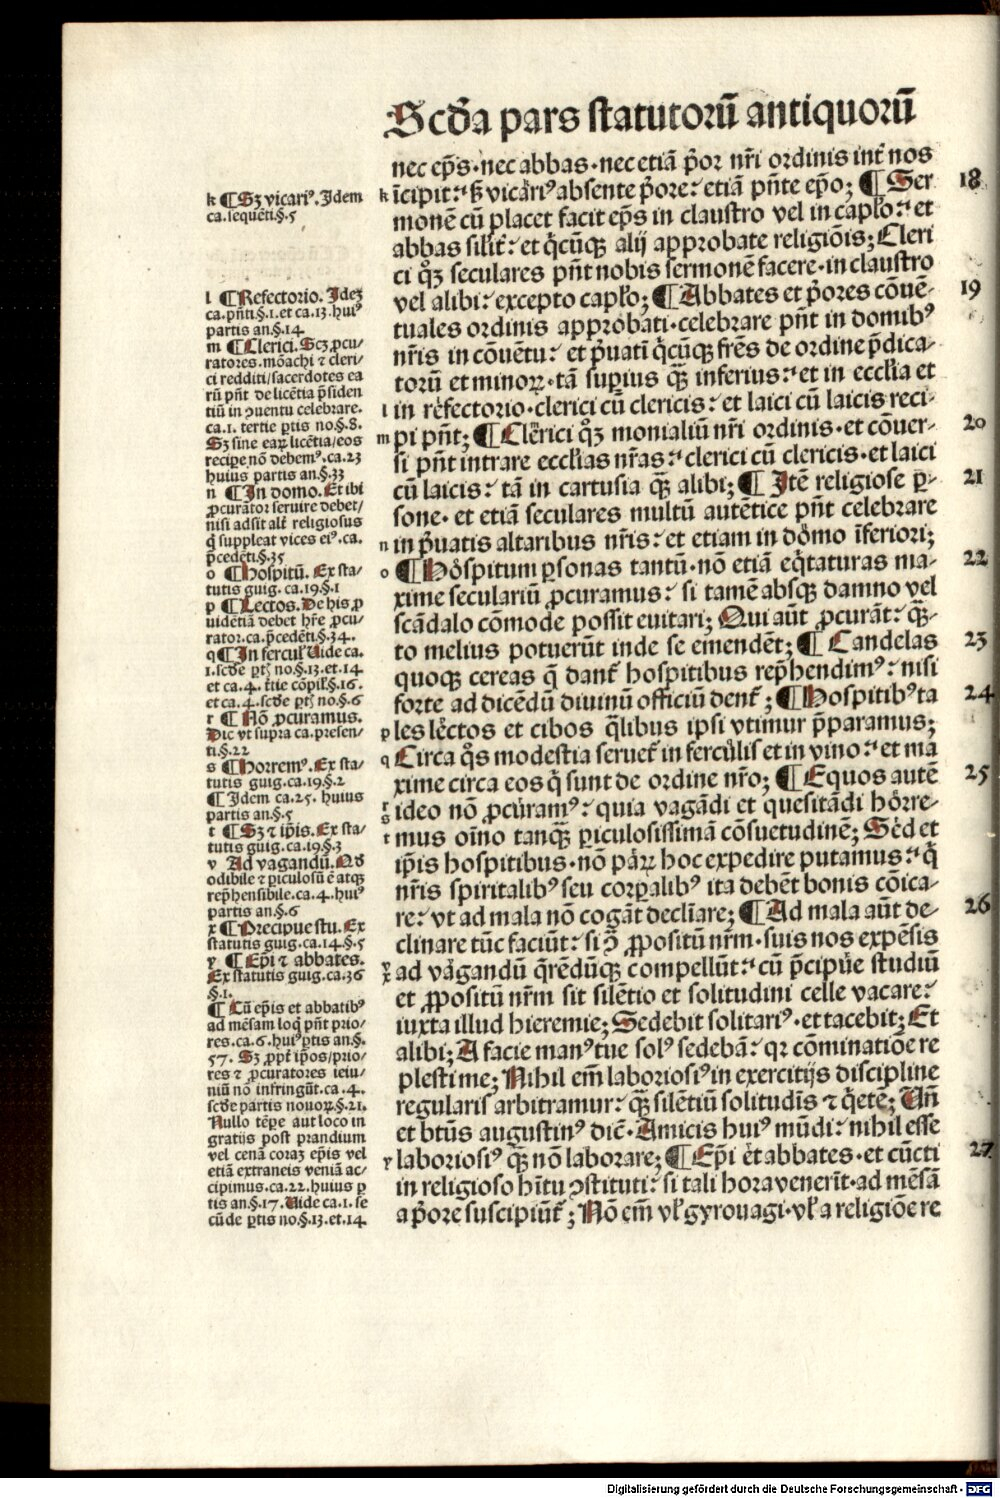 Scd̄a pars statutorū antiquorū
nec ep̄s·nec abbas·nec etiā p̄or nr̄i ordinis int̄ nos
īcipit: s; vicari⁹ absente p̄ore: etiā pn̄te ep̄o; ¶ Ser
monē cū placet facit ep̄s in claustro vel in capl̄o: et
abbas silīt: et q̄cūq; alij approbate religiōis; Cleri
ci qꝫ seculares pn̄t nobis sermonē facere·in claustro
vel alibi: excepto capl̄o; ¶ Abbates et p̄ores cōuē-
tuales ordinis approbati·celebrare pn̄t in domib⁹
nr̄is in cōuētu: et p̄uati q̄cūq; fr̄es de ordine p̄dica-
torū et minoꝝ·tā supius q̄ꝫ inferius: et in eccl̄ia et
in refectorio·clerici cū clericis: et laici cū laicis reci-
pi pn̄t; ¶ Clerici qꝫ monialiū nr̄i ordinis·et cōuer-
si pn̄t intrare eccl̄ias nr̄as: clerici cū clericis·et laici
cū laicis: tā in cartusia q̄ꝫ alibi; ¶ Itē religiose ꝑ-
sone·et etiā seculares multū autētice pn̄t celebrare
in p̄uatis altaribus nr̄is: et etiam in domo īferiori;
¶ Hospitum ꝑsonas tantū·nō etiā eq̄taturas ma-
xime seculariū ꝓcuramus: si tamē absq; damno vel
scādalo cōmode possit euitari; Qui aūt ꝓcurāt: q̄ꝫ-
to melius potuerūt inde se emendēt; ¶ Candelas
quoq; cereas q̄ dant̄ hospitibus rep̄hendim⁹: nisi
forte ad dicēdū diuinū officiū dent̄; ¶ Hospitib⁹ ta
les lectos et cibos q̄libus ipsi vtimur p̄paramus;
Circa q̄s modestia seruet̄ in ferculis et in vino: et ma
xime circa eos q̄ sunt de ordine nr̄o; ¶ Equos autē
ideo nō ꝓcuram⁹: quia vagādi et quesitādi horre-
mus oīno tanq̄ꝫ ꝑiculosissimā cōsuetudinē; Sed et
ip̄is hospitibus·nō paꝝ hoc expedire putamus: q̄
nr̄is spiritalib⁹ seu corꝑalib⁹ ita debēt bonis cōica-
re: vt ad mala nō cogāt declīare; ¶ Ad mala aūt de-
clinare tūc faciūt: si ꝯ̄ ꝓpositū nr̄m·suis nos expēsis
ad vagandū q̄rēdūq; compellūt: cū p̄cipue studiū
et ꝓpositū nr̄m sit silētio et solitudini celle vacare:
iuxta illud hieremie; Sedebit solitari⁹·et tacebit; Et
alibi; A facie man⁹ tue sol⁹ sedebā: qꝛ cōminatiōe re
plesti me; Nihil em̄ laboriosi⁹ in exercitijs discipline
regularis arbitramur: q̄ꝫ silētiū solitudīs ⁊ q̄etē; Vn̄
et btūs augustin⁹ dic̄·Amicis hui⁹ mūdi: nihil esse
laboriosi⁹ q̄ꝫ nō laborare; ¶ Ep̄i et abbates·et cūcti
in religioso hītu ꝯstituti: si tali hora venerīt·ad mēsā
a p̄ore suscipiūt̄; Nō em̄ vl̄ gyrouagi·vl̄ a religiōe re
18
19
20
21
22
23
24
25
26
27
k ¶ Sꝫ vicari⁹. Idem
ca.sequēti.§.5
l ¶ Refectorio. Ideꝫ
ca.pn̄ti.§.1.et ca.13.hui⁹
partis an.§.14
m ¶ Clerici. Scꝫ ꝓcu/
ratores.mōachi ⁊ cleri/
ci redditi/sacerdotes ea
rū pn̄t de licētia p̄siden
tiū in ꝯuentu celebrare.
ca.1. tertie ꝑtis no.§.8.
Sꝫ sine eaꝝ licētia/eos
recipe nō debem⁹.ca.23
huius partis an.§.33
n ¶ In domo. Et ibi
ꝓcurator seruire debet/
nisi adsit alt̄ religiosus
q̄ suppleat vices ei⁹.ca.
p̄cedēti.§.35
o ¶ Hospitū. Ex sta/
tutis guig. ca.19.§.1
p ¶ Lectos. De his ꝓ
uidētiā debet hr̄e ꝓcu/
rator.ca.p̄cedēti.§.34.
q ¶ In fercul̄ Vide ca.
1.scd̄e ꝑtꝭ no.§.13.et.14
et ca.4. t̄tie cōpil̄.§.16.
et ca.4.scd̄e ꝑtꝭ no.§.6
r ¶ Nō ꝓcuramus.
Dic vt supra ca.presen/
ti.§.22
s ¶ Horrem⁹. Ex sta/
tutis guig.ca.19.§.2
¶ Idem ca.25. huius
partis an.§.5
t ¶ Sꝫ ⁊ ip̄is. Ex sta/
tutis guig.ca.19.§.3
v Ad vagandū. Qd̄
odibile ⁊ ꝑiculosū ē atqꝫ
rep̄hensibile.ca.4.hui⁹
partis an.§.6
x ¶ Precipue stu. Ex
statutis guig.ca.14.§.5
y ¶ Ep̄i ⁊ abbates.
Ex statutis guig.ca.36
§.1.
¶ Cū ep̄is et abbatib⁹
ad mēsam loq̄ pn̄t prio/
res.ca.6.hui⁹ ꝑtis an.§.
57. Sꝫ ꝓpt̄ ip̄os/prio/
res ⁊ ꝓcuratores ieiu/
niū nō infringūt.ca.4.
scd̄e partis nouoꝝ.§.21.
Nullo tēꝑe aut loco in
gratijs post prandium
vel cenā coraꝫ ep̄is vel
etiā extraneis veniā ac/
cipimus.ca.22.huius ꝑ
tis an.§.17. Vide ca.1.se
cūde ꝑtis no.§.13.et.14
Digitalisierung gefördert durch die Deutsche Forschungsgemeinschaft - DFG